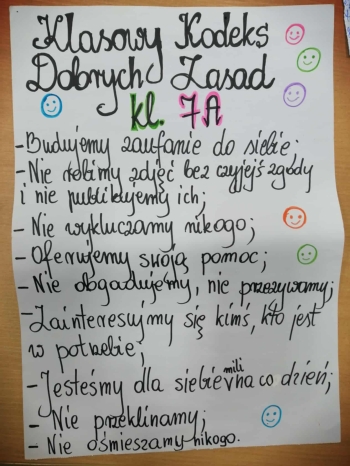 Klasowy Kodeks
Dobrych Zasad
kl. 7A
- Budujemy zaufanie do siebie;
- Nie robimy zdjęć bez czyjejś zgody
i nie publikujemy ich;
- Nie wykluczamy nikogo;
- Oferujemy swoją pomoc;
- Nie obgadujemy, nie przezywamy;
- Zainteresujmy się kimś, kto jest
w potrzebie;
- Jesteśmy dla siebie mili na co dzień;
- Nie przeklinamy;
- Nie ośmieszamy nikogo.